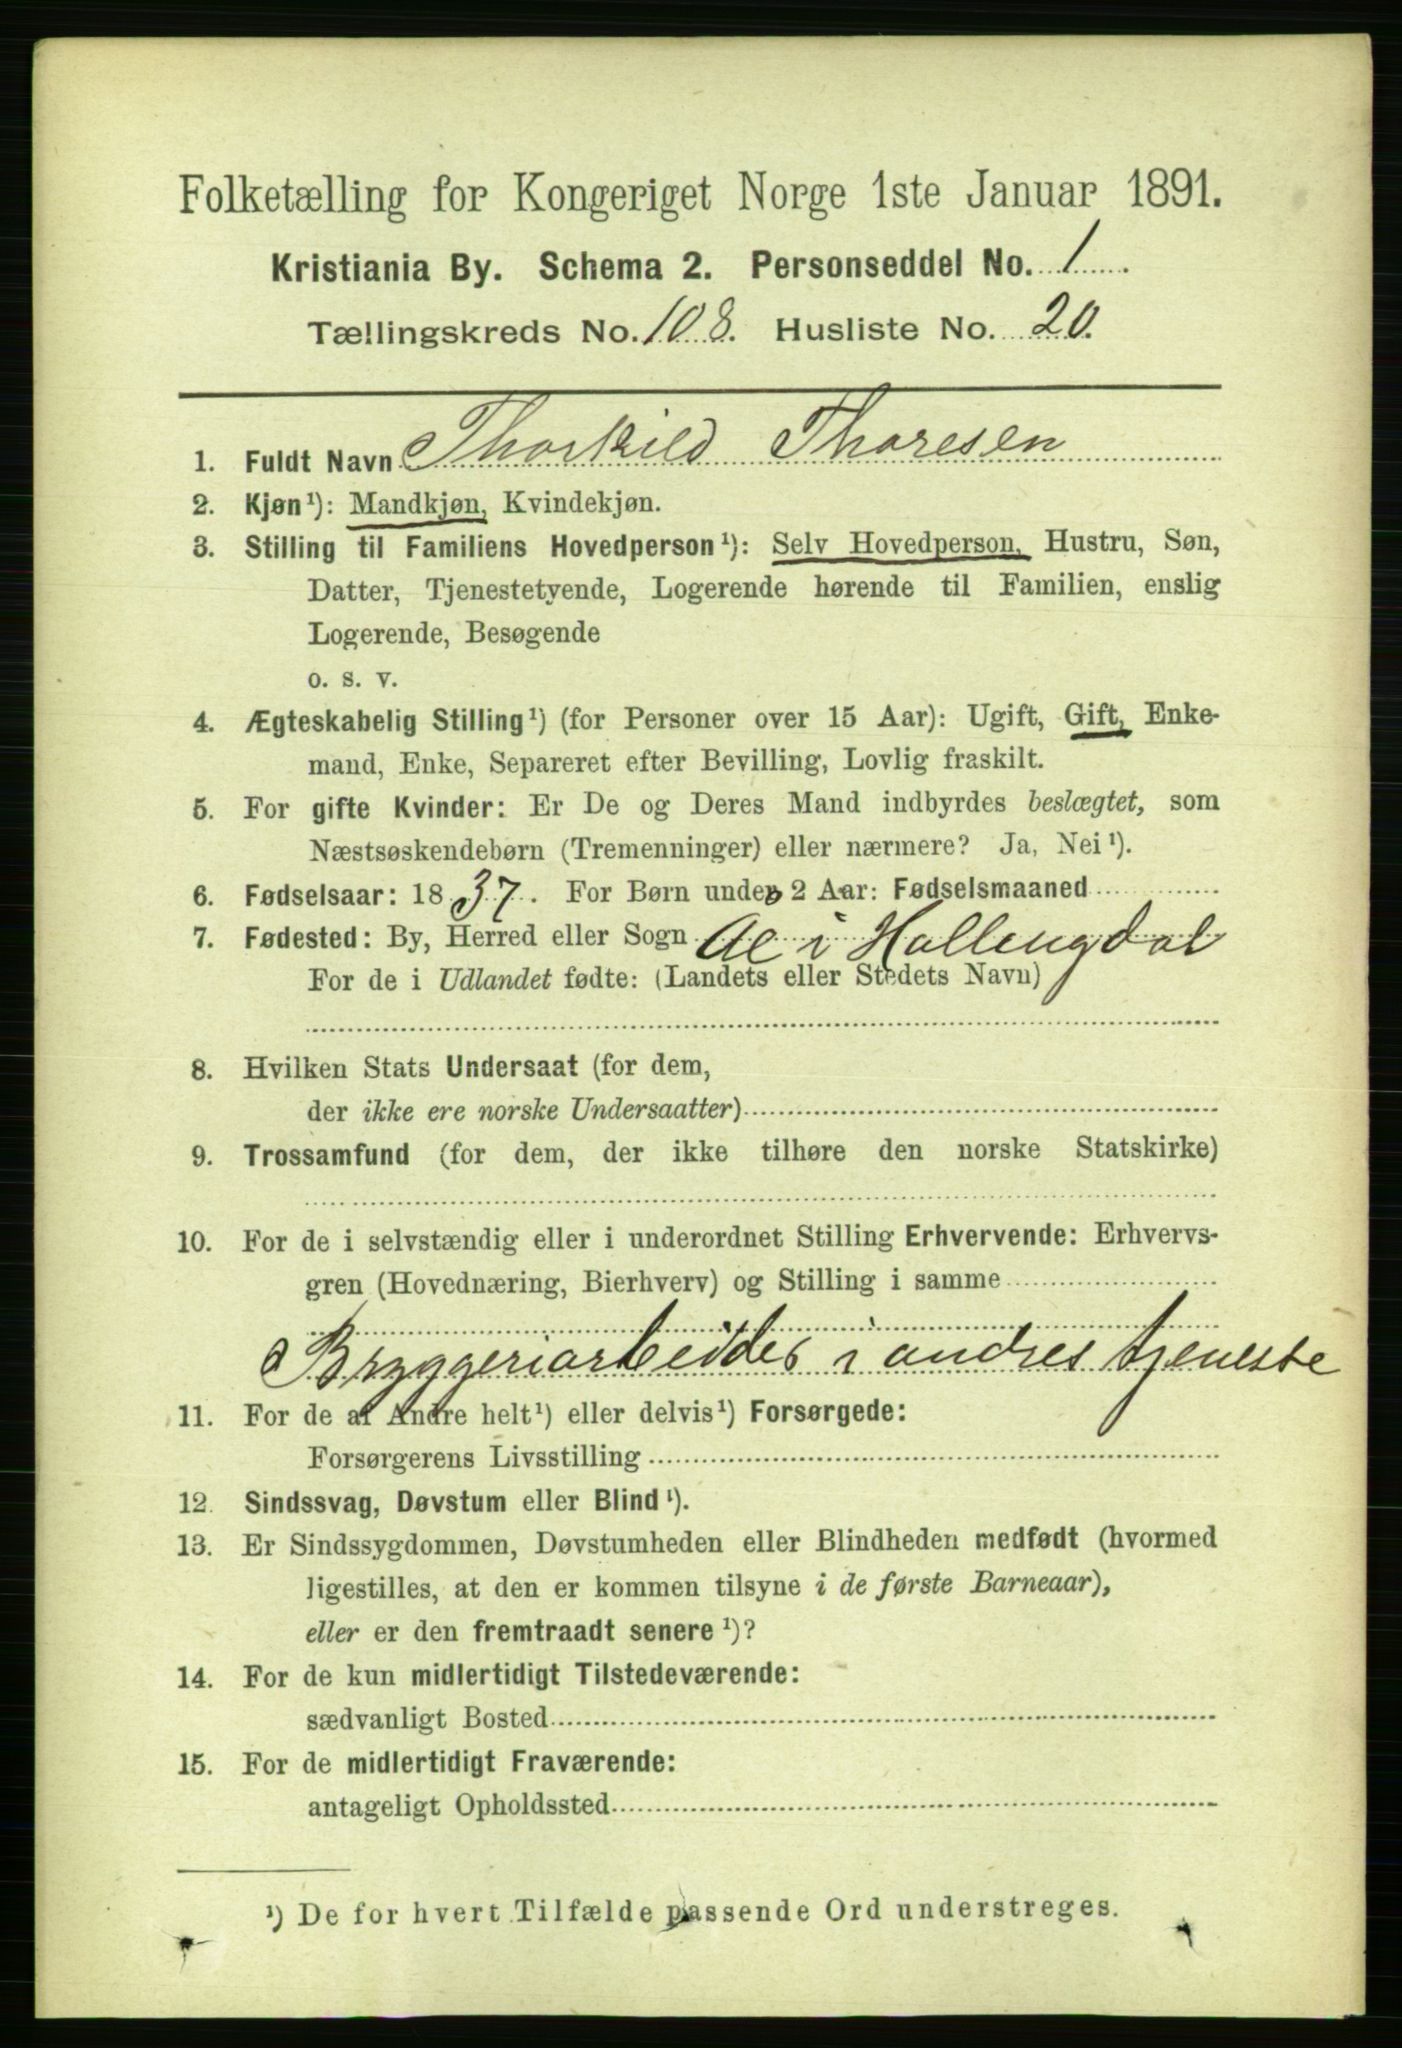 Folketælling for Kongeriget Norge 1ste Januar 1891.
Kristiania By. Schema 2. Personseddel No. 1.
Tællingskreds No. 108. Husliste No. 20.
1. Fuldt Navn Thorkild Thoresen
2. Kjøn¹): Mandkjøn, Kvindekjøn.
3. Stilling til Familiens Hovedperson¹): Selv Hovedperson, Hustru, Søn,
Datter, Tjenestetyende, Logerende hørende til Familien, enslig
Logerende, Besøgende
o. s. v.
4. Ægteskabelig Stilling¹) (for Personer over 15 Aar): Ugift, Gift, Enke-
mand, Enke, Separeret efter Bevilling, Lovlig fraskilt.
5. For gifte Kvinder: Er De og Deres Mand indbyrdes beslægtet, som
Næstsøskendebørn (Tremenninger) eller nærmere? Ja, Nei¹).
6. Fødselsaar: 1837. For Børn under 2 Aar: Fødselsmaaned
7. Fødested: By, Herred eller Sogn Al i Hallengdal
For de i Udlandet fødte: (Landets eller Stedets Navn)
8. Hvilken Stats Undersaat (for dem,
der ikke ere norske Undersaatter)
9. Trossamfund (for dem, der ikke tilhøre den norske Statskirke)
10. For de i selvstændig eller i underordnet Stilling Erhvervende: Erhvervs-
gren (Hovednæring, Bierhverv) og Stilling i samme
Bryggeriarbeider i andres tjeneste
11. For de af Andre helt¹) eller delvis¹) Forsørgede:
Forsørgerens Livsstilling
12. Sindssvag, Døvstum eller Blind¹).
13. Er Sindssygdommen, Døvstumheden eller Blindheden medfødt (hvormed
ligestilles, at den er kommen tilsyne i de første Barneaar),
eller er den fremtraadt senere¹)?
14. For de kun midlertidigt Tilstedeværende:
sædvanligt Bosted
15. For de midlertidigt Fraværende:
antageligt Opholdssted
¹) De for hvert Tilfælde passende Ord understreges.